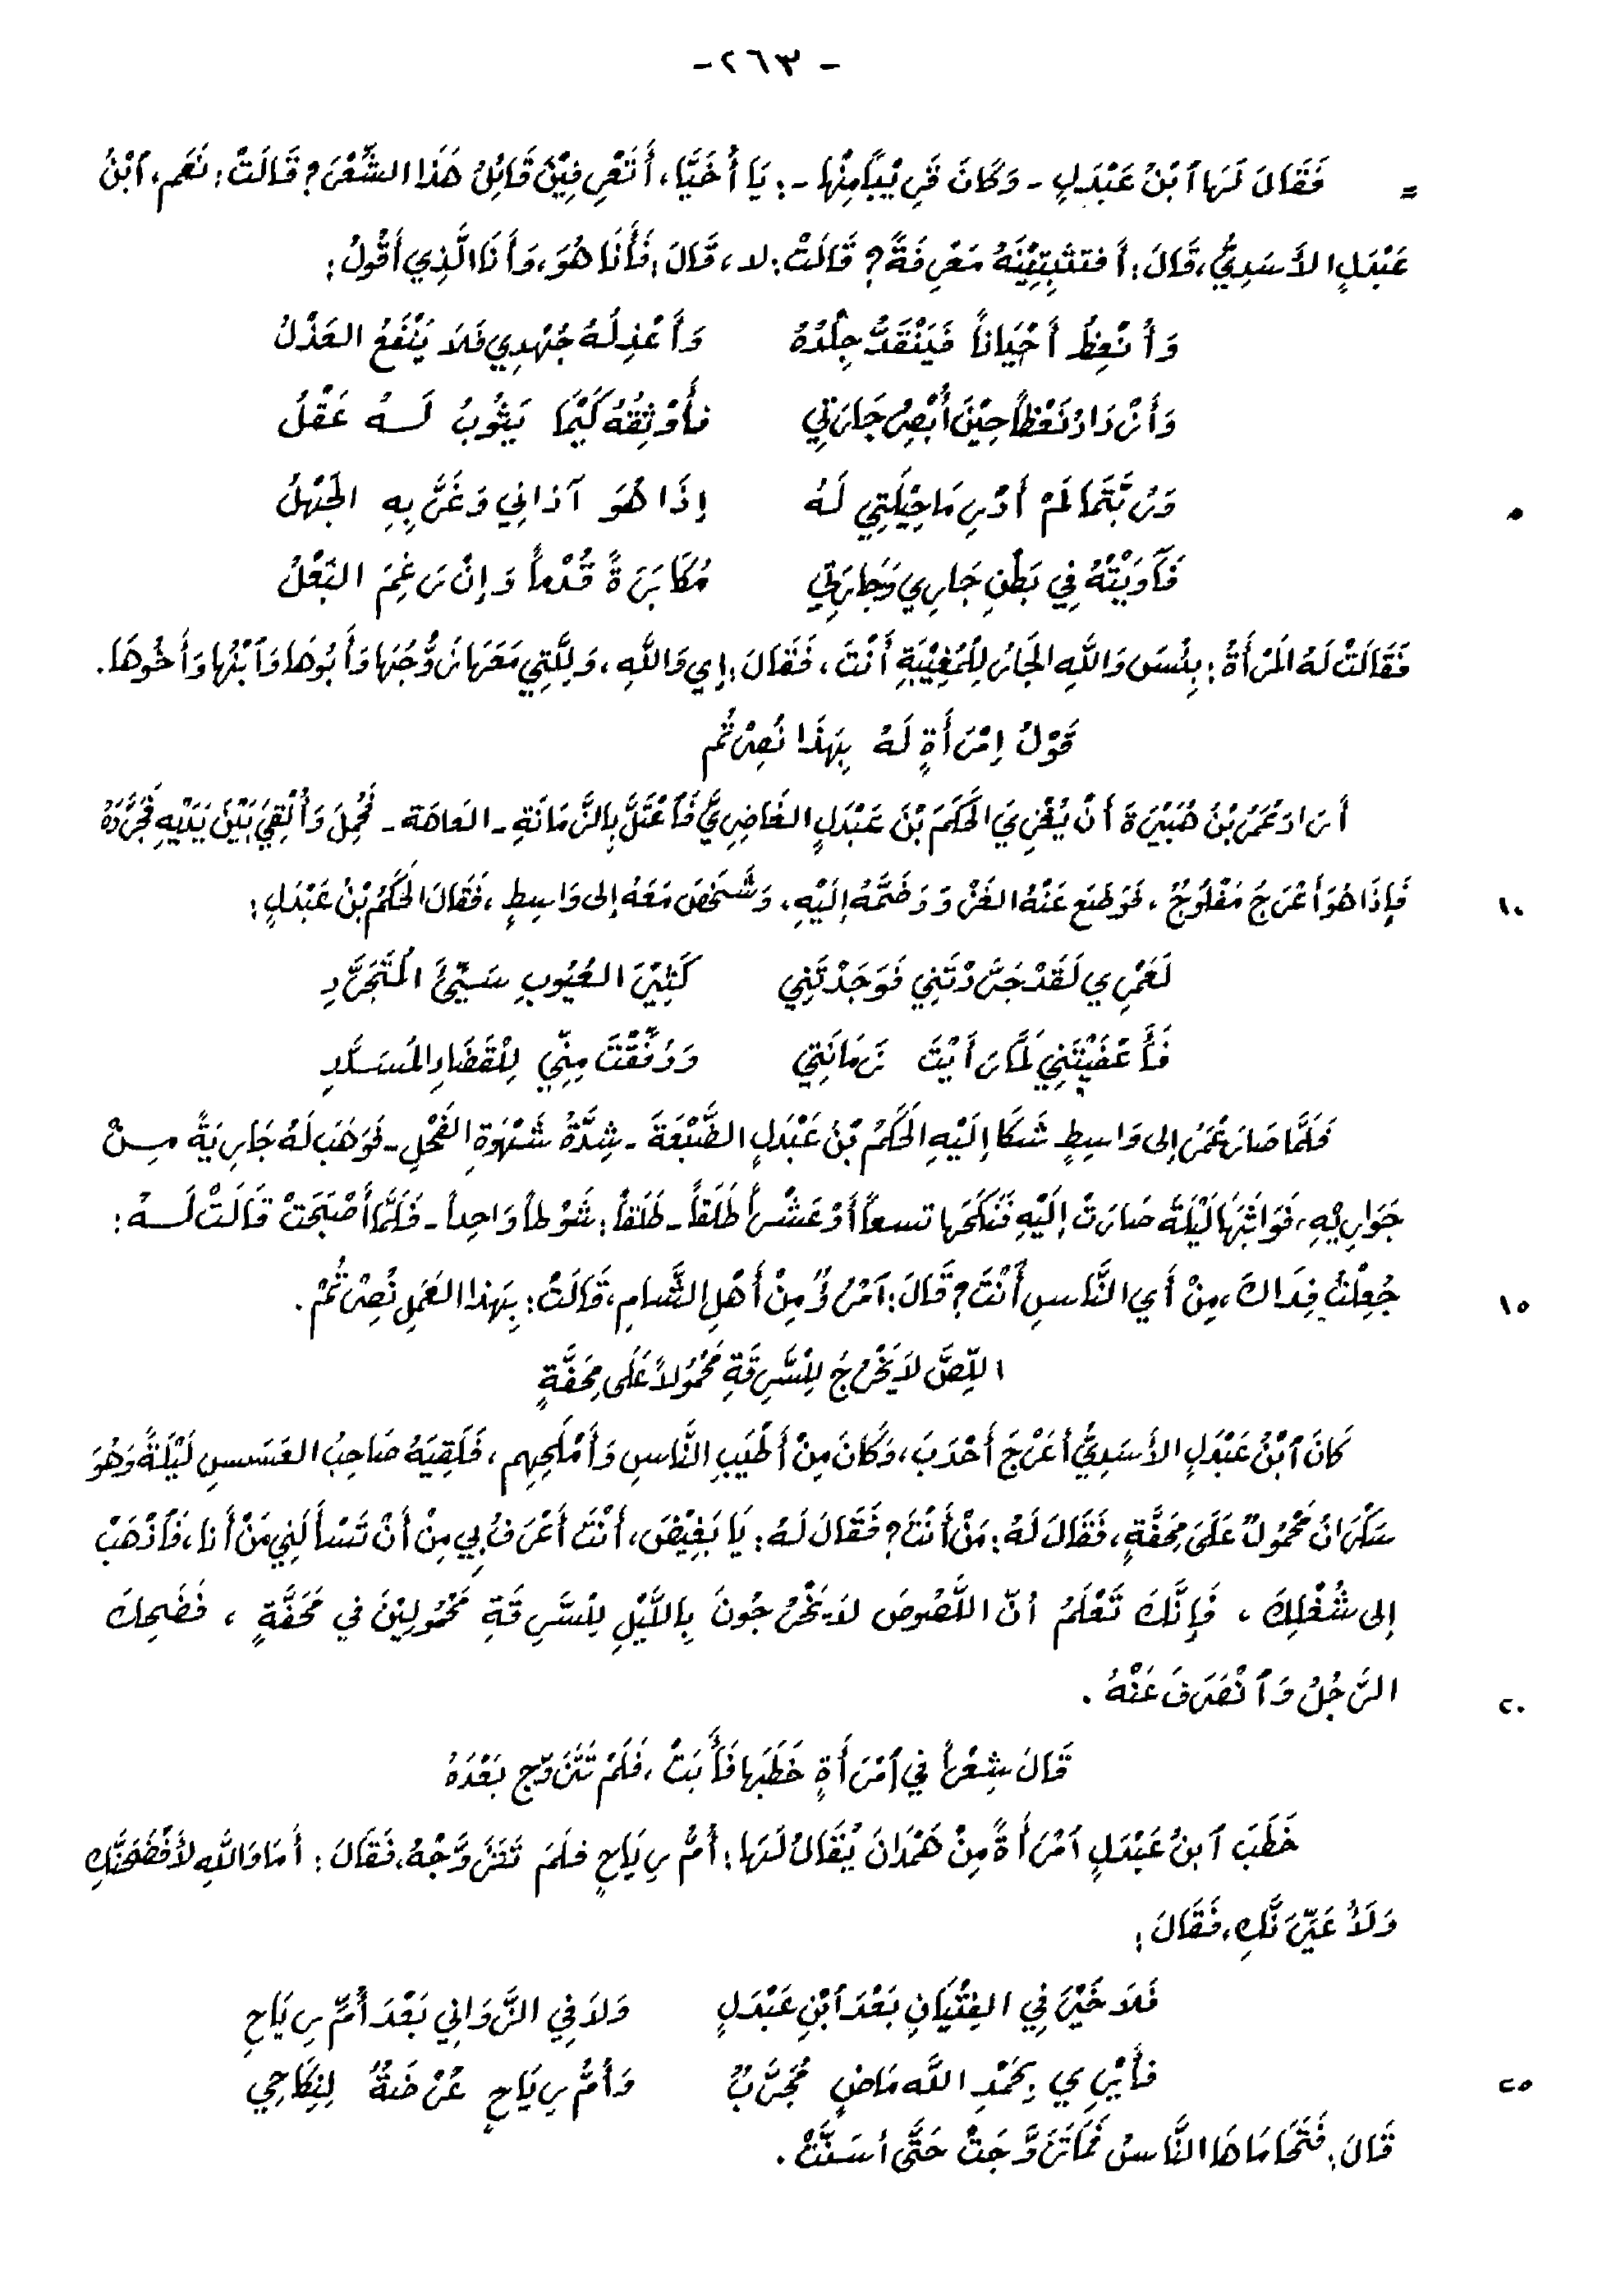 - ٢٦٣ -
= فَقَالَ لَهَا ٱبْنُ عَبْدَلٍ - وَكَانَ قَرِيْبَاً مِنْهَا - : يَا أُخَيَّا، أَتَعْرِفِيْنَ قَائِلَ هَذَا الشِّعْرَ؟ قَالَتْ: نَعَم، ٱبْنُ
عَبْدَلٍ الأَسَدِيُّ، قَالَ: أَفتثبِتِيْنَهُ مَعْرِفَةً؟ قَالَتْ: لا، قَالَ: فَأَنَا هُوَ، وَأَنَا الَّذِي أَقُولُ:
وَأُنْعِظُ أَحْيَاناً فَيَنْقَدُّ جِلْدُهُ وَأَعْذِلُهُ جُهْدِي فَلاَ يَنْفَعُ العَذْلُ
وَأَزْدَادُ نَعْظاً حِيْنَ أُبْصِرُ جَارَتِي فأُوْثِقُهُ كَيْمَا يَثُوبُ لَهُ عَقْلُ
٥ وَرُبَّتَمَا لَمْ أَدْرِ مَا حِيْلَتِي لَهُ إِذَا هُوَ آذانِي وَغَرَّ بِهِ الجَهْلُ
فَآوَيْتُهُ فِي بَطْنِ جَارِي وَجَارَتِي مُكَابَرَةً قُدْماً وَإِنْ رَغِمَ البَعْلُ
فَقَالَتْ لَهُ المَرْأَةُ: بِئْسَ وَاللَّهِ الجَارُ لِلْمُغِيْبَةِ أَنْتَ، فَقَالَ: إِي وَاللَّهِ، وَلِلَّتِي مَعَهَا زَوْجُهَا وَأَبُوهَا وَٱبْنُهَا وَأَخُوهَا.
قَوْلُ إِمْرَأَةٍ لَهُ بِهَذَا نُصِرْتُم
أَرَادَ عُمَرُ بْنُ هُبَيْرَةَ أَنْ يُغْزِيَ الحَكَمَ بْنَ عَبْدَلٍ الغَاضِرِيَّ فَٱعْتَلَّ بِالزَّمَانَةِ - العَاهَة - فَحُمِلَ وَأُلْقِيَ بَيْنَ يَدَيْهِ فَجَرَّدَهُ
١٠ فَإِذَا هُوَ أَعْرَجُ مَفْلُوجٌ، فَوَضَعَ عَنْهُ الغَزْوَ وَضَمَّهُ إِلَيْهِ، وَشَخَصَ مَعَهُ إلى وَاسِطٍ، فَقَالَ الحَكَمُ بْنُ عَبْدَلٍ:
لَعَمْرِي لَقَدْ جَرَّدْتَنِي فَوَجَدْتَنِي كَثِيْرَ العُيُوبِ سَيِّئَ المُتَجَرَّدِ
فَأَعْفَيْتَنِي لَمَّا رَأَيْتَ زَمَانَتِي وَوُفِّقْتَ مِنِّي لِلْقَضَاءِ المُسَدَّدِ
فَلَمَّا صَارَ عُمَرُ إلى وَاسِطٍ شَكَا إِلَيْهِ الحَكَمُ بْنُ عَبْدَلٍ الضَّبْعَةَ - شِدَّةُ شَهْوَةِ الفَحْلِ - فَوَهَبَ لَهُ جَارِيَةً مِنْ
جَوَارِيْهِ، فَوَاثَبَهَا لَيْلَةَ صَارَتْ إِلَيْهِ فَنَكَحَهَا تسعاً أَوْ عَشْراً طَلَقاً - طَلَقاً: شَوْطاً وَاحِداً - فَلَمَّا أَصْبَحَتْ قَالَتْ لَهُ:
١٥ جُعِلْتُ فِدَاكَ، مِنْ أَيِ النَّاسِ أَنْتَ؟ قَالَ: ٱمْرُؤٌ مِنْ أَهْلِ الشَّامِ، قَالَتْ: بِهَذا العَمَلِ نُصِرْتُمْ.
اللِّصُّ لاَ يَخْرُجُ لِلسَّرِقَةِ مَحْمُولاً عَلَى مِحَفَّةٍ
كَانَ ٱبْنُ عَبْدَلٍ الأَسَدِيُّ أَعْرَجَ أَحْدَبَ، وَكَانَ مِنْ أَطْيَبِ النَّاسِ وَأَمْلَحِهِم، فَلَقِيَهُ صَاحِبُ العَسَسِ لَيْلَةً وَهُوَ
سَكْرَانُ مَحْمُولٌ عَلَى مِحَفَّةٍ، فَقَالَ لَهُ: مَنْ أَنْتَ؟ فَقَالَ لَهُ: يَا بَغِيْضُ، أَنْتَ أَعْرَفُ بِي مِنْ أَنْ تَسْأَلَنِي مَنْ أَنا، فَٱذْهَبْ
إلى شُغْلِكَ، فَإِنَّكَ تَعْلَمُ أنّ اللُّصُوصَ لاَ يَخْرُجُونَ بِاللَّيْلِ لِلسَّرِقَةِ مَحْمُولِيْنَ في مَحَفَّةٍ، فَضَحِكَ
٢٠ الرَّجُلُ وَٱنْصَرَفَ عَنْهُ.
قَالَ شِعْراً في ٱمْرَأَةٍ خَطَبَها فَأَبَتْ، فَلَمْ تَتَزَوَّج بَعْدَهُ
خَطَبَ ٱبنُ عَبْدَلٍ ٱمْرَأَةً مِنْ هَمْدَانَ يُقَالُ لَهَا: أُمُّ رِيَاحٍ فلَم تَتَزَوَّجْهُ، فَقَالَ: أَمَا وَاللَّهِ لأَفْضَحَنَّكِ
وَلأُعَيِّرَنَّكِ، فَقَالَ:
فَلاَ خَيْرَ فِي الفِتْيَانِ بَعْدَ ٱبْنِ عَبْدَلٍ وَلاَ فِي الزَّوَانِي بَعْدَ أُمِّ رِيَاحِ
٢٥ فأَيْرِي بِحَمْدِ اللَّه مَاضٍ مُجَرَّبٌ وَأُمُّ رِيَاحٍ عُرْضَةٌ لِنِكَاحِي
قَالَ: فَتَحَامَاهَا النَّاسُ فَمَا تَزَوَّجَتْ حَتَّى أسَنَّتْ.